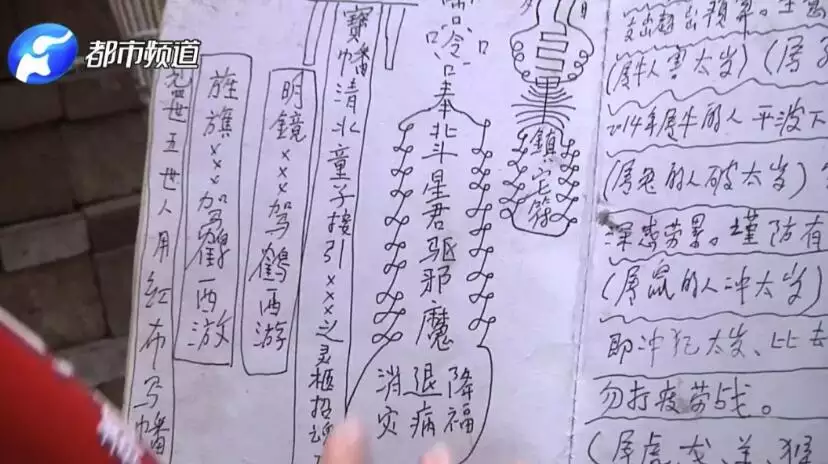 都市频道
鎮宅符
奉北斗星君驱邪魔
降福
退病
消灾
寶幡清北童子接引×××之灵柩招魂
明鏡×××驾鹤西游
旌旗×××駕鶴西游
世五世人用红布写幡
(属牛人害太岁)(属
2014年属牛的人平波下
(属兔的人破太岁)
深感劳累。谨防有
(属鼠的人冲太岁)
即冲犯太岁、比去
勿打疲劳战。
(属虎、龙、羊、猴